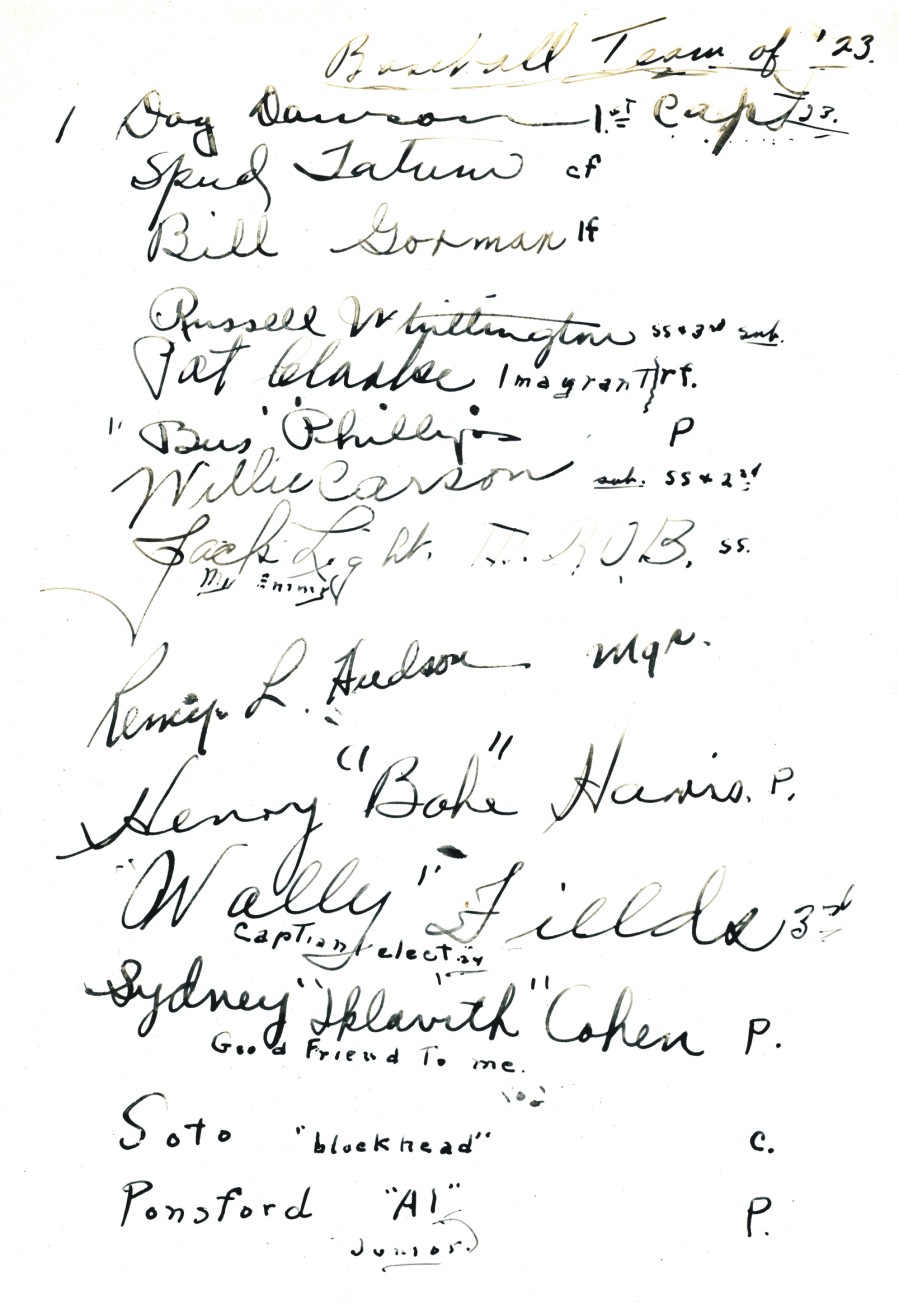 Baseball Team of '23.
1 Doy Dawson 1.st Capt 23.
Spud Tatum cf
Bill Gorman lf
Russell Whittington ss & 3rd sub.
Pat Clarke Imagrant rf.
"Bus" Phillips P
Willie Carson sub. ss & 2nd
Jack Light. D.R.O.B. ss.
My Enimy
L. Hudson Mgr.
Henry "Bohe" Harris. P.
"Wally" Fields 3rd
Captian elect 24
Sydney "Sklavith" Cohen P.
Good Friend To me.
Soto "blockhead" C.
Ponsford "Al" P.
Junior.